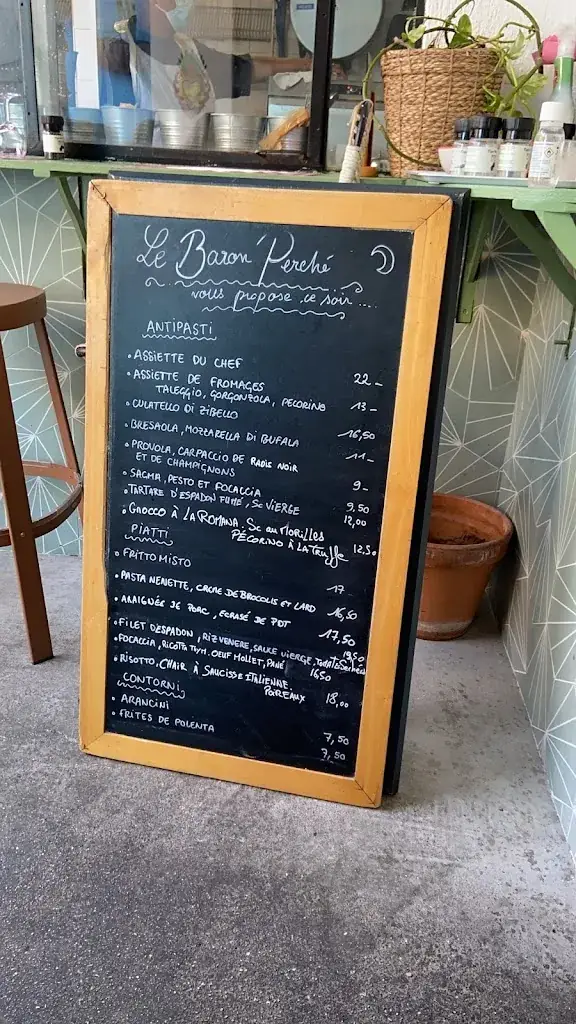 Le Baron' Perché
vous propose ce soir ....
ANTIPASTI
• ASSIETTE DU CHEF 22 -
• ASSIETTE DE FROMAGES
TALEGGIO, GORGONZOLA, PECORINO 13 -
• CULATELLO DI ZIBELLO 16,50
• BRESAOLA, MOZZARELLA DI BUFALA 11 -
• PROVOLA, CARPACCIO DE RADIS NOIR
ET DE CHAMPIGNONS 9 -
• SAGMA, PESTO ET FOCACCIA 9,50
• TARTARE D'ESPADON FUMÉ, Sc VIERGE 12,00
• GNOCCO À LA ROMANA. Sc aux MORILLES
PÉCORINO À LA Truffe 12,50
PIATTI
• FRITTO MISTO 17
• PASTA NENETTE, CRÈME DE BROCOLIS ET LARD 16,50
• ARAIGNÉE DE PORC, ECRASÉ DE PDT 17,50
• FILET D'ESPADON, RIZ VENERE, SAUCE VIERGE, 19,50
• FOCACCIA, RICOTTA, OEUF MOLLET, PANÉ 16,50
• RISOTTO, CHAIR À SAUCISSE ITALIENNE,
POIREAUX 18,00
CONTORNI
• ARANCINI 7,50
• FRITES DE POLENTA 7,50